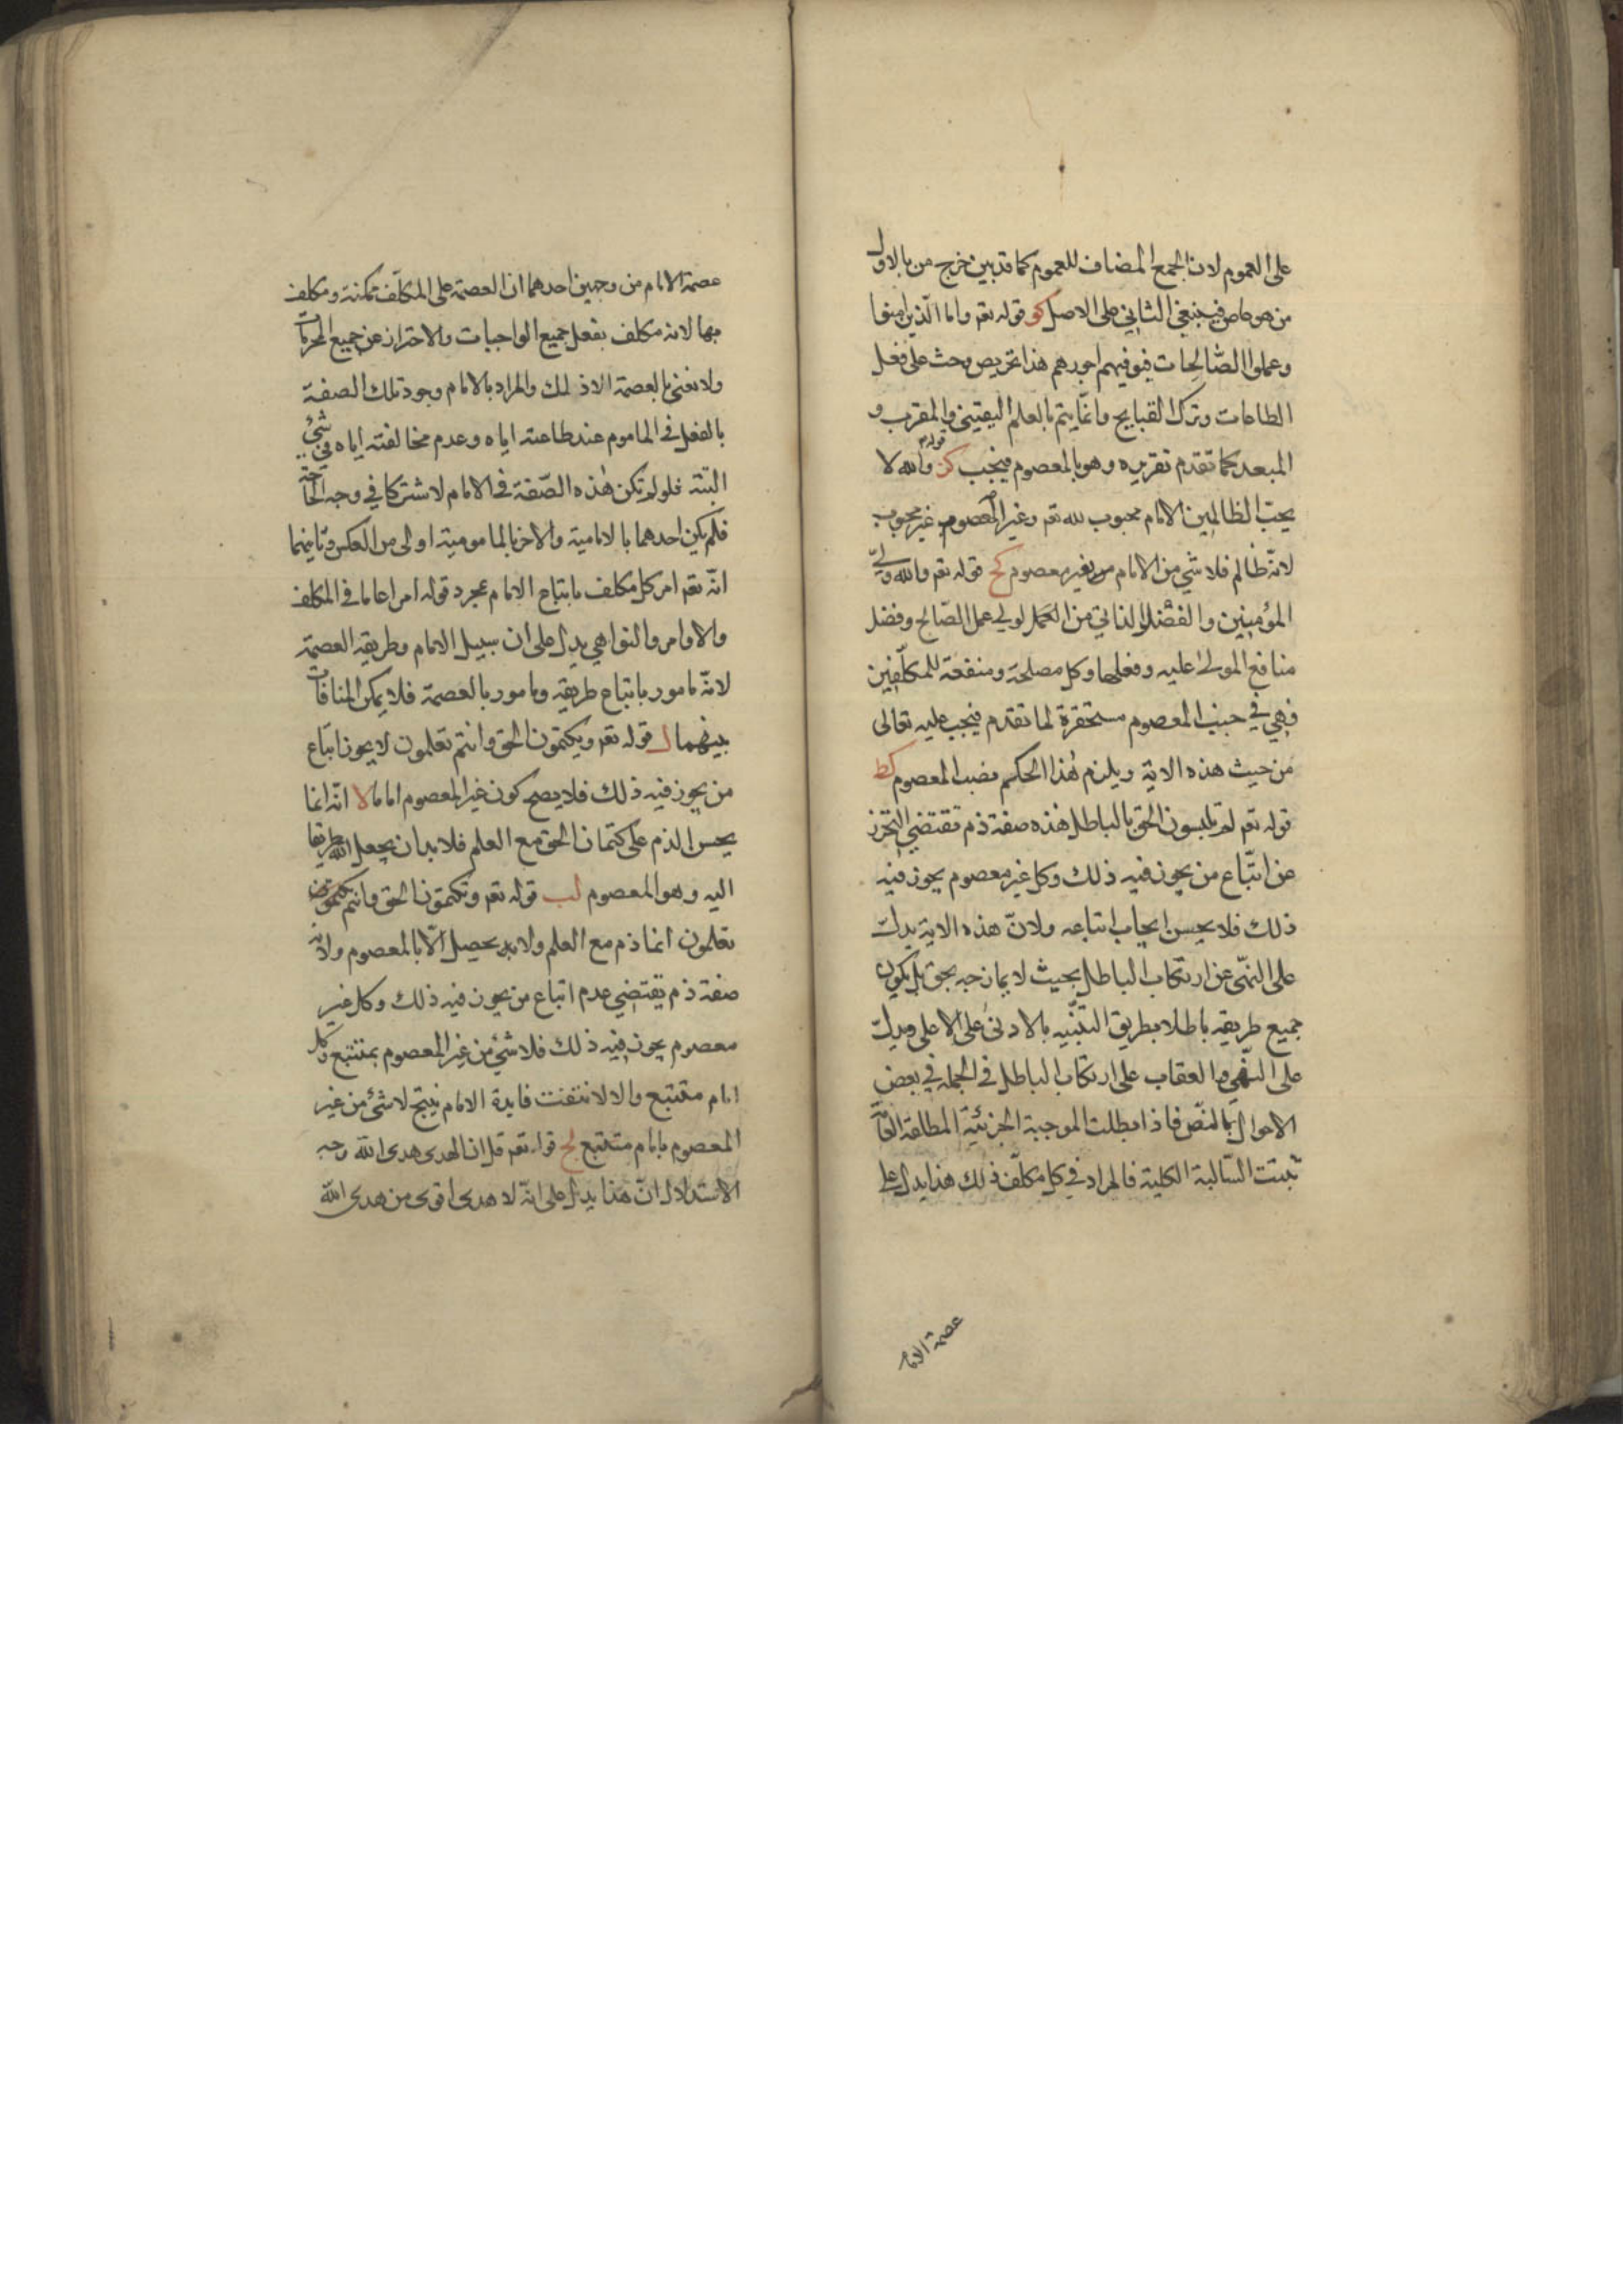 على العموم لان الجمع المضاف للعموم كما قد بين خرج من بالاول
من هو عاص فيبقى الثاني على الاصل كو قوله تعه واما الذين امنوا
وعملوا الصالحات فيوفيهم اجورهم هذا تحريص وحث على فعل
الطاعات وترك القبايح وانما يتم بالعلم اليقيني والمقرب و
المبعد كما تقدم تقريره وهو بالمعصوم فيجب كز قوله تعه والله لا
يحب الظالمين الامام محبوب لله تعه وغير المعصوم غير محبوب
لانه ظالم فلا شي من الامام من بغير معصوم كح قوله تعه والله ولي
المؤمنين والفضل الذاتي من العمل لولي عمل الصالح وفضل
منافع المولى عليه وفعلها وكل مصلحة ومنفعة للمكلفين
فهي في جنب المعصوم مستحقرة لما تقدم فيجب عليه تعالى
من حيث هذه الاية ويلزم هذا الحكم نصب المعصوم كط
قوله تعه لم تلبسون الحق بالباطل هذه صفة ذم تقتضي التحرز
عن اتباع من يجوز فيه ذلك وكل غير معصوم يجوز فيه
ذلك فلا يحسن ايجاب اتباعه ولان هذه الاية يدل
على النهي عن ارتكاب الباطل بحيث لا يمازجه بحق بل يكون
جميع طريقه باطلا بطريق التنبيه بالادنى على الاعلى ويدل
على النهي والعقاب على ارتكاب الباطل في الجملة في بعض
الاحوال بالنص فاذا بطلت الموجبة الجزئية المطلقة العامة
ثبتت السالبة الكلية فالمراد في كل مكلف ذلك هذا يدل على
عصمة الامام
عصمة الامام من وجهين احدهما ان العصمة على المكلف ممكنة ومكلف
بها لانه مكلف بفعل جميع الواجبات والاحتراز عن جميع المحرمات
ولا نعني بالعصمة الا ذلك والمراد بالامام وجود تلك الصفة
بالفعل في الماموم عند طاعته اياه وعدم مخالفته اياه في شئ
البتة فلو لم تكن هذه الصفة في الامام لاشتركا في وجه الحاجة
فلم يكن احدهما بالامامية والاخر بالمامومية اولى من العكس وثانيهما
انه تعه امر كل مكلف باتباع الامام بمجرد قوله امرا عاما في المكلف
والاوامر والنواهي يدل على ان سبيل الامام وطريقه العصمة
لانه مامور باتباع طريقه ومامور بالعصمة فلا يمكن المنافات
بينهما ل قوله تعه ويكتمون الحق وانتم تعلمون لا يجوز اتباع
من يجوز فيه ذلك فلا يصح كون غير المعصوم اماما لا انه انما
يحسن الذم على كتمان الحق مع العلم فلا بد ان يجعل الله طريقا
اليه وهو المعصوم لب قوله تعه وتكتمون الحق وانتم
تعلمون انما ذم مع العلم ولا يحصيل الا بالمعصوم ولانه
صفة ذم يقتضي عدم اتباع من يجوز فيه ذلك وكل غير
معصوم يجوز فيه ذلك فلا شئ من غير المعصوم بمتتبع وكل
امام متتبع والا لانتفت فايدة الامام ينتج لا شئ من غير
المعصوم بامام متتبع لج قوله تعه قل ان الهدى هدى الله وجه
الاستدلال ان هذا يدل على انه لا هدى اقوى من هدى الله